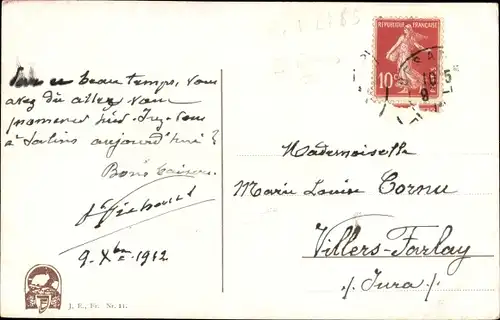 beau temps, vous
avez dû aller vous
promener hier. Irez-vous
à Salins aujourd'hui ?
Bons baisers.
9 Xbre 1912
J. E., Nr. 11.
RÉPUBLIQUE FRANÇAISE
10c
Mademoiselle
Marie Louise Cornu
Villers-Farlay
Jura